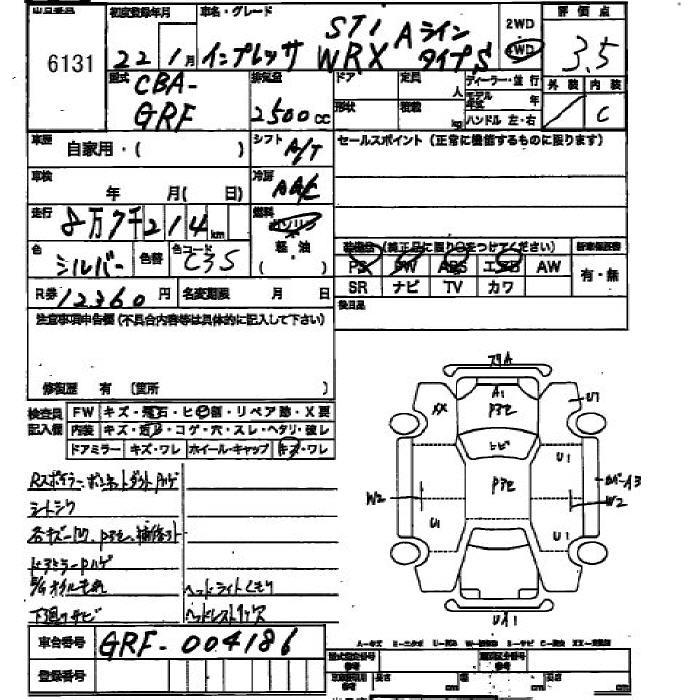 出品番号 初度登録年月 車名・グレード 2WD 評価点
6131 22年1月 インプレッサ STI Aライン
WRX タイプS 4WD 3.5
型式 CBA- 排気量 ドア 定員 ディーラー・並行 外装 内装
GRF 2500cc 形状 積載 kg モデル年式 年 C
ハンドル 左・右
車歴 自家用・( ) シフト A/T セールスポイント (正常に機能するものに限ります)
車検 年 月( 日) 冷房 AAC
走行 8万7千214km 燃料 ガソリン
軽・油
( )
色 シルバー 色替 色コード C3S
装備品 (純正品に限り○をつけてください) 新車保証書
PS PW ABS エアB AW 有・無
SR ナビ TV カワ
R券 12360円 名変期限 月 日 後日品
注意事項申告欄 (不具合内容等は具体的に記入して下さい)
修復歴 有 (箇所
検査員記入欄 FW キズ・飛石・ヒビ割・リペア跡・X要
内装 キズ・汚れ・コゲ・穴・スレ・ヘタリ・破レ
ドアミラー キズ・ワレ ホイール・キャップ キズ・ワレ
Rスポイラー、ボンネットダクトハゲ
シートシワ
各キズ凹、P3セ、補修ペイント
ドアミラーハゲ
オイルもれ ヘッドライトくもり
下廻りサビ ヘッドレスト
スリA
XX A1 P3セ U1
トビ
U1
W2 P3セ W2 A3
U1 U1
UA1
車台番号 GRF-004186
登録番号
A-キズ E-エクボ U-凹み W-補修跡 S-サビ C-腐食 XX-交換済
型式指定番号 類別区分番号
長さ cm 幅 cm 高さ cm